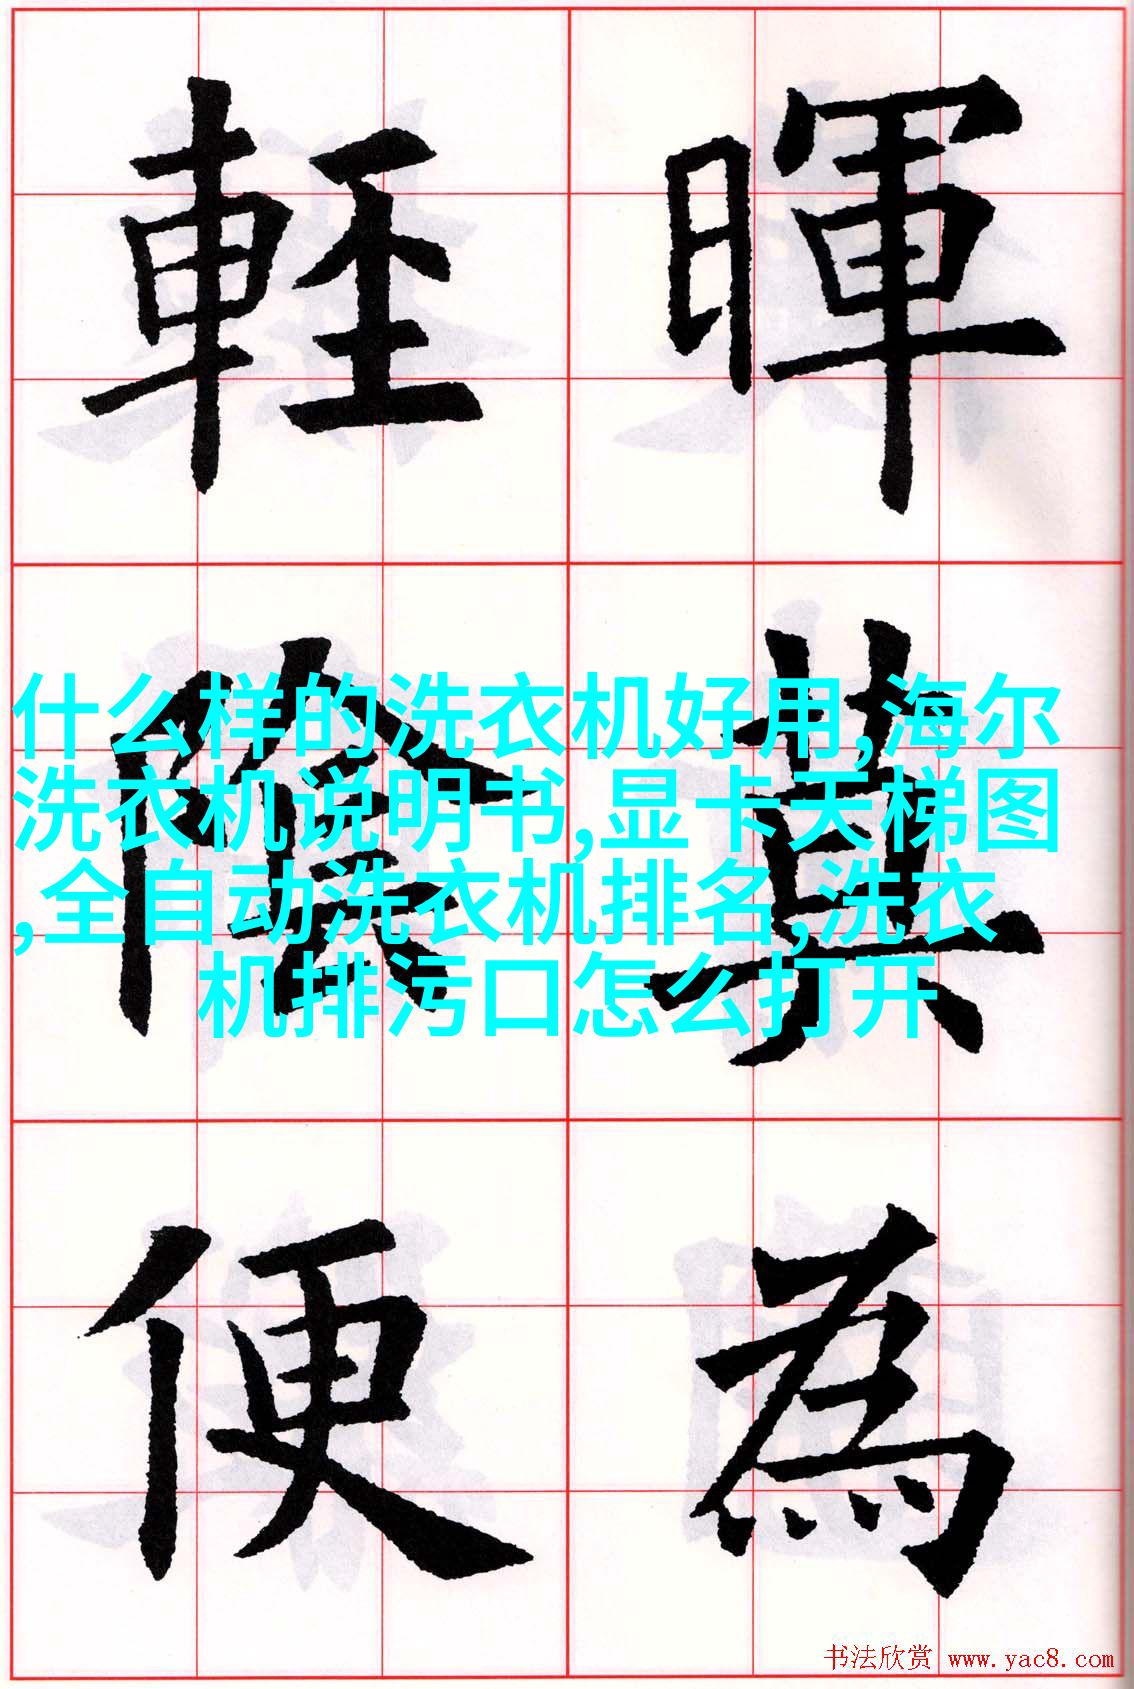 暉莫為
輕陰便
什么样的洗衣机好用,海尔
洗衣机说明书,显卡天梯图
,全自动洗衣机排名,洗衣
机排污口怎么打开
书法欣赏 www.yac8.com